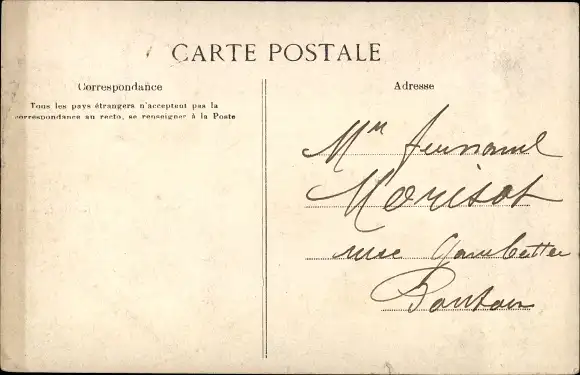 CARTE POSTALE
Correspondance
Tous les pays étrangers n'acceptent pas la
correspondance au recto, se renseigner à la Poste
Adresse
Mr fernand
Morisot
rue Gambetta